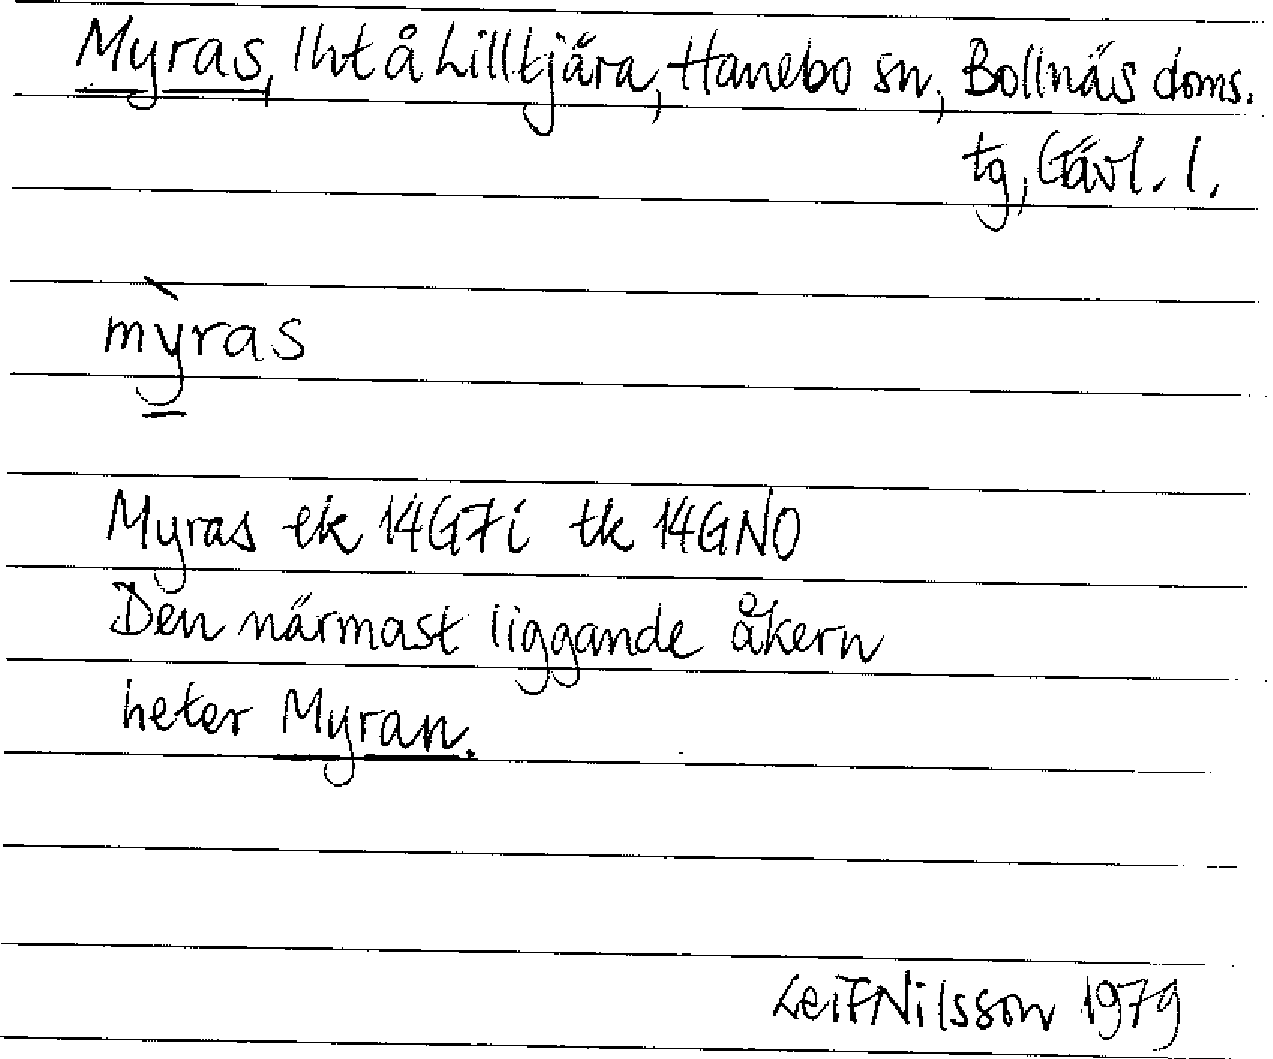 Myras, lht å Lilltjära, Hanebo sn, Bollnäs doms.
tg, Gävl. l.
mỳras
Myras ek 14G7i tk 14GNO
Den närmast liggande åkern
heter Myran.
Leif Nilsson 1979